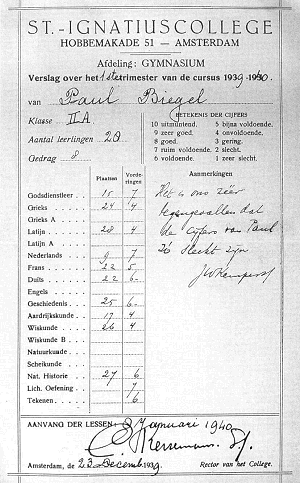 ST.-IGNATIUSCOLLEGE
HOBBEMAKADE 51 — AMSTERDAM
Afdeling: GYMNASIUM
Verslag over het 1ste trimester van de cursus 1939-1940.
van Paul Biegel
Klasse II A
Aantal leerlingen 28
Gedrag 8
BETEKENIS DER CIJFERS
10 uitmuntend. 5 bijna voldoende.
9 zeer goed. 4 onvoldoende.
8 goed. 3 gering.
7 ruim voldoende. 2 slecht.
6 voldoende. 1 zeer slecht.
Plaatsen Vorderingen Aanmerkingen
Godsdienstleer 15 7
Grieks 24 4
Grieks A
Latijn 28 4
Latijn A
Nederlands 9 7
Frans 22 5
Duits 22 6-
Engels
Geschiedenis 25 6-
Aardrijkskunde 17 4
Wiskunde 26 4
Wiskunde B
Natuurkunde
Scheikunde
Nat. Historie 27 6
Lich. Oefening 7
Tekenen 6
Het is ons zéér
tegengevallen dat
de cijfers van Paul
zó slecht zijn
AANVANG DER LESSEN: 8 Januari 1940
Amsterdam, de 23 Decemb. 1939. Rector van het College.